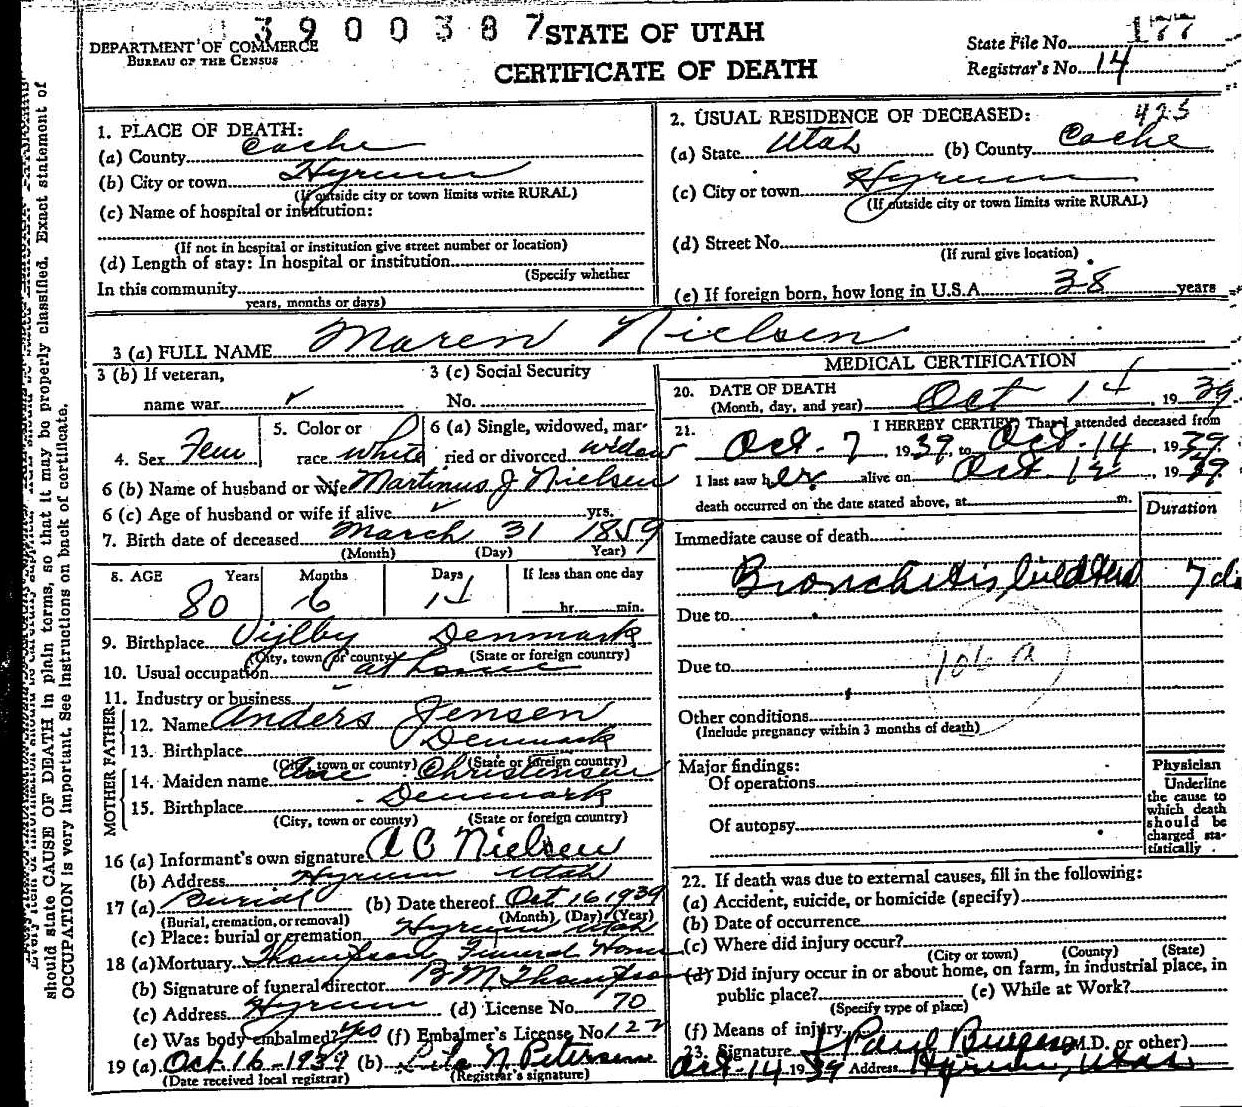 3900387
STATE OF UTAH
CERTIFICATE OF DEATH
DEPARTMENT OF COMMERCE
BUREAU OF THE CENSUS
State File No. 177
Registrar's No. 14
should state CAUSE OF DEATH in plain terms, so that it may be properly classified. Exact statement of
OCCUPATION is very important. See instructions on back of certificate.
1. PLACE OF DEATH:
(a) County Cache
(b) City or town Hyrum
(If outside city or town limits write RURAL)
(c) Name of hospital or institution:
(If not in hospital or institution give street number or location)
(d) Length of stay: In hospital or institution
(Specify whether
In this community
years, months or days)
2. USUAL RESIDENCE OF DECEASED: 423
(a) State Utah (b) County Cache
(c) City or town Hyrum
(If outside city or town limits write RURAL)
(d) Street No.
(If rural give location)
(e) If foreign born, how long in U.S.A. 38 years
3 (a) FULL NAME Maren Nielsen
3 (b) If veteran,
name war
3 (c) Social Security
No.
4. Sex Fem
5. Color or
race white
6 (a) Single, widowed, mar-
ried or divorced widow
6 (b) Name of husband or wife Martinus J Nielsen
6 (c) Age of husband or wife if alive yrs.
7. Birth date of deceased March 31 1859
(Month) (Day) Year)
8. AGE Years Months Days If less than one day
80 6 14 hr. min.
9. Birthplace Denmark
(City, town or county) (State or foreign country)
10. Usual occupation at home
11. Industry or business
FATHER
12. Name Anders Jensen
13. Birthplace Denmark
(City, town or county) (State or foreign country)
MOTHER
14. Maiden name Ane Christensen
15. Birthplace Denmark
(City, town or county) (State or foreign country)
16 (a) Informant's own signature A C Nielsen
(b) Address Hyrum Utah
17 (a) Burial (b) Date thereof Oct 16 1939
(Burial, cremation, or removal) (Month) (Day) (Year)
(c) Place: burial or cremation Hyrum Utah
18 (a) Mortuary Thompson Funeral Home
(b) Signature of funeral director B M Thompson
(c) Address Hyrum (d) License No. 70
(e) Was body embalmed? Yes (f) Embalmer's License No. 127
19 (a) Oct. 16-1939 (b) Lila N. Petersen
(Date received local registrar) (Registrar's signature)
MEDICAL CERTIFICATION
20. DATE OF DEATH
(Month, day, and year) Oct 14, 1939
21. I HEREBY CERTIFY, That I attended deceased from
Oct. 7, 1939, to Oct. 14, 1939.
I last saw her alive on Oct. 14, 1939
death occurred on the date stated above, at m.
Duration
Immediate cause of death
Bronchitis, 7 da
Due to
Due to
106 a
Other conditions
(Include pregnancy within 3 months of death)
Major findings:
Of operations
Of autopsy
Physician
Underline
the cause to
which death
should be
charged sta-
tistically.
22. If death was due to external causes, fill in the following:
(a) Accident, suicide, or homicide (specify)
(b) Date of occurrence
(c) Where did injury occur?
(City or town) (County) (State)
(d) Did injury occur in or about home, on farm, in industrial place, in
public place? (e) While at Work?
(Specify type of place)
(f) Means of injury
23. Signature J Paul Burgess (M.D. or other)
Oct. 14 1939 Address Hyrum, Utah